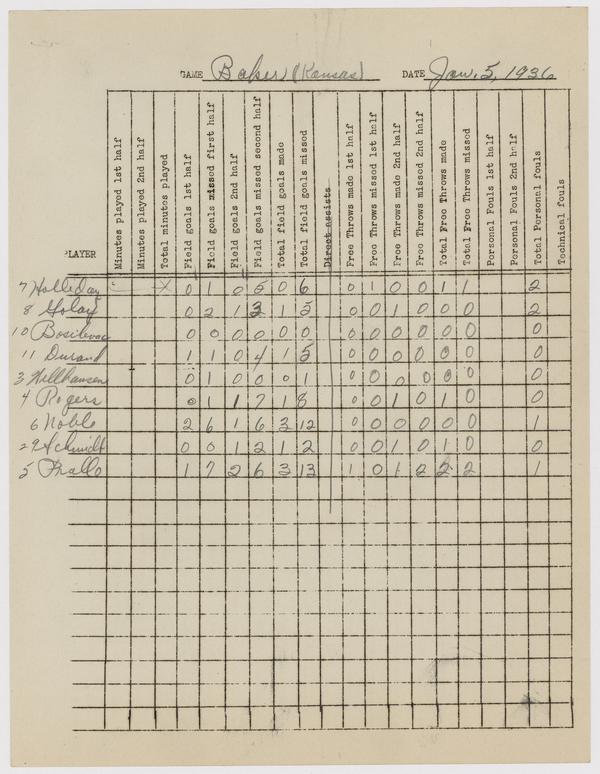 GAME Baker (Kansas) DATE Jan. 5, 1936
PLAYER Minutes played 1st half Minutes played 2nd half Total minutes played Field goals 1st half Field goals missed first half Field goals 2nd half Field goals missed second half Total field goals made Total field goals missed Direct assists Free Throws made 1st half Free Throws missed 1st half Free Throws made 2nd half Free Throws missed 2nd half Total Free Throws made Total Free Throws missed Personal Fouls 1st half Personal Fouls 2nd half Total Personal fouls Technical fouls
7 Holliday X 0 1 0 5 0 6 0 1 0 0 1 1 2
8 Golay 0 2 1 3 1 5 0 0 1 0 0 0 2
10 Bosilevac 0 0 0 0 0 0 0 0 0 0 0 0 0
11 Durand 1 1 0 4 1 5 0 0 0 0 0 0 0
3 Wellhausen 0 1 0 0 0 1 0 0 0 0 0 0 0
4 Rogers 0 1 1 7 1 8 0 0 1 0 1 0 0
6 Noble 2 6 1 6 3 12 0 0 0 0 0 0 1
29 Schmidt 0 0 1 2 1 2 0 0 1 0 1 0 0
5 Pralle 1 7 2 6 3 13 1 0 1 2 2 2 1